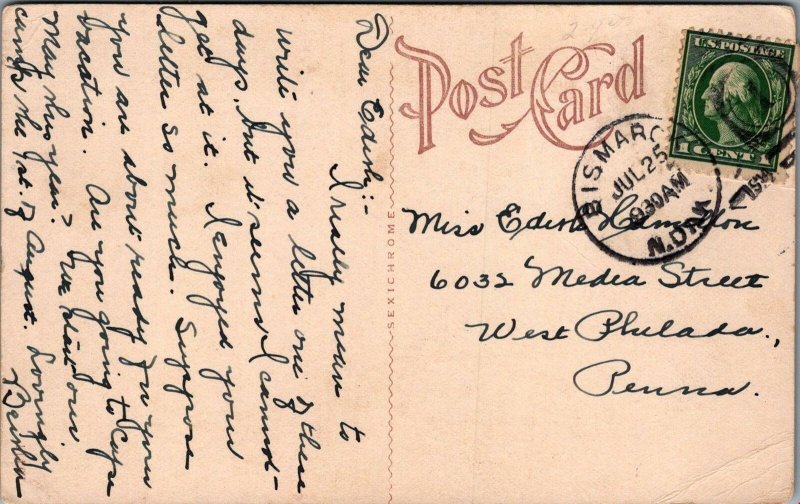 Post Card
U.S. POSTAGE
1 CENT 1
BISMARCK
JUL 25
930AM
N.DAK.
SEXICHROME
Dear Edith:-
I really mean to
write you a letter one of these
days, but it seems I cannot
get at it. I enjoyed your
letter so much. Suppose
you are about ready for your
vacation. Are you going to Cape
May this year? We start our
camp the 1st. of August. Lovingly
Miss Edith
6032 Media Street
West Philada.,
Penna.